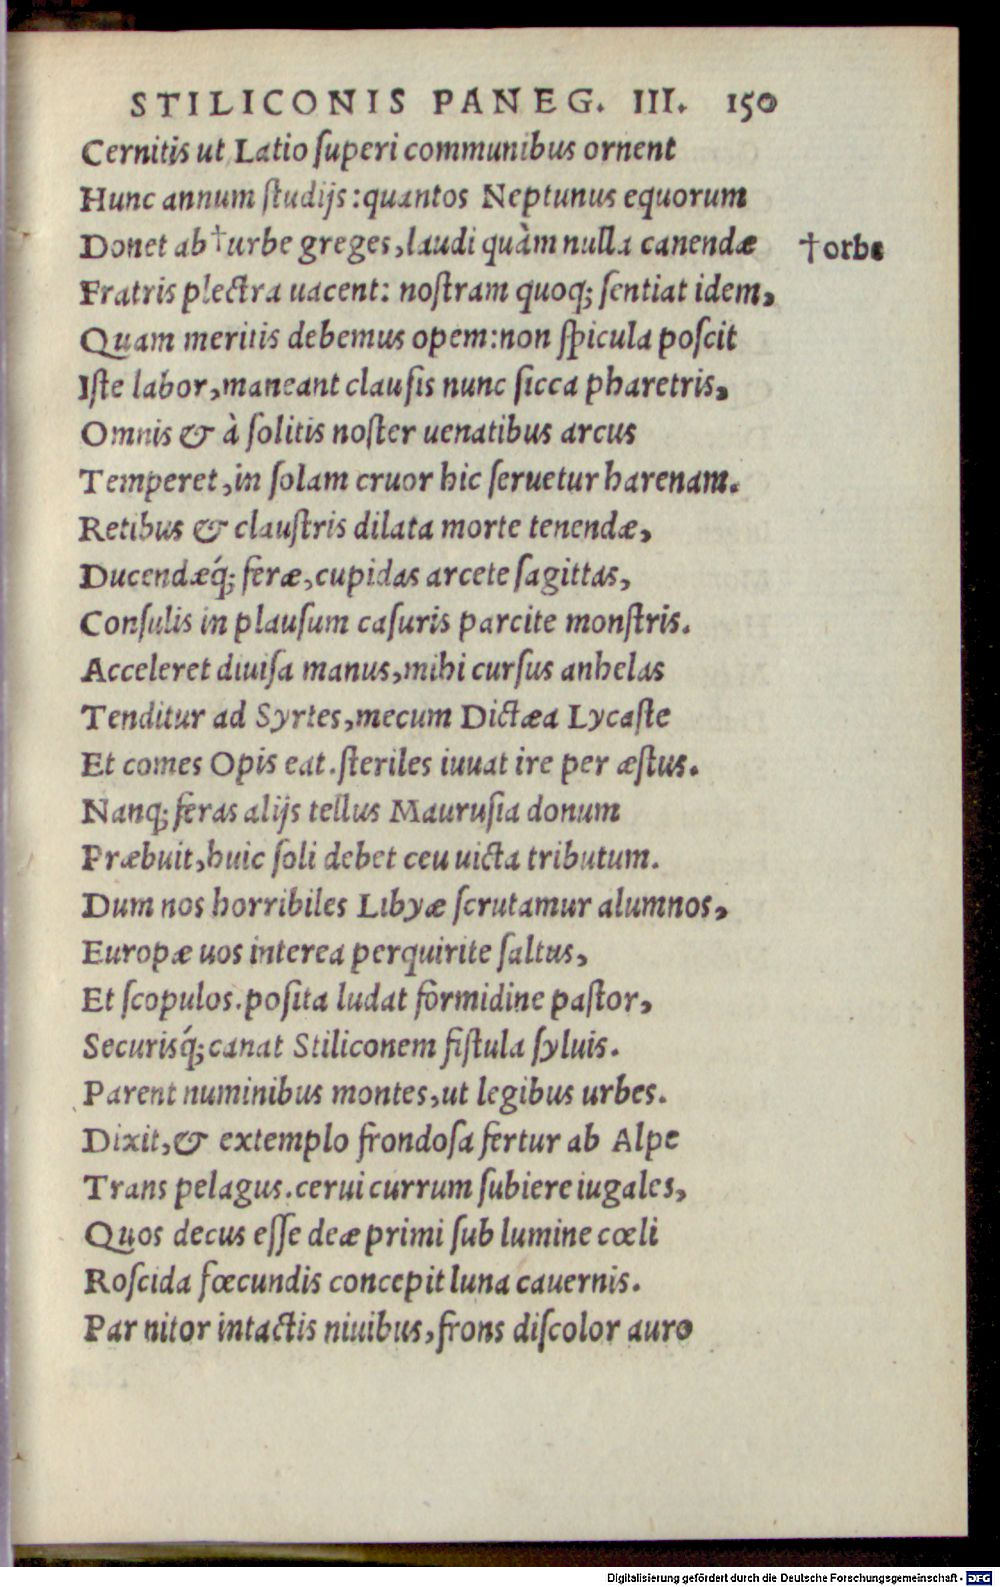 STILICONIS PANEG. III. 150
Cernitis ut Latio ſuperi communibus ornent
Hunc annum ſtudijs:quantos Neptunus equorum
Donet ab †urbe greges,laudi quàm nulla canendæ †orbe
Fratris plectra uacent: noſtram quoq; ſentiat idem,
Quam meritis debemus opem:non ſpicula poſcit
Iſte labor,maneant clauſis nunc ſicca pharetris,
Omnis & à ſolitis noſter uenatibus arcus
Temperet,in ſolam cruor hic ſeruetur harenam.
Retibus & clauſtris dilata morte tenendæ,
Ducendæq́; feræ,cupidas arcete ſagittas,
Conſulis in plauſum caſuris parcite monſtris.
Acceleret diuiſa manus,mihi curſus anhelas
Tenditur ad Syrtes,mecum Dictæa Lycaſte
Et comes Opis eat.ſteriles iuuat ire per æſtus.
Nanq; feras alijs tellus Mauruſia donum
Præbuit,huic ſoli debet ceu uicta tributum.
Dum nos horribiles Libyæ ſcrutamur alumnos,
Europæ uos interea perquirite ſaltus,
Et ſcopulos.poſita ludat formidine paſtor,
Securisq́;canat Stiliconem fiſtula ſyluis.
Parent numinibus montes,ut legibus urbes.
Dixit,& extemplo frondoſa fertur ab Alpe
Trans pelagus.cerui currum ſubiere iugales,
Quos decus eſſe deæ primi ſub lumine cœli
Roſcida fœcundis concepit luna cauernis.
Par nitor intactis niuibus,frons diſcolor auro
Digitalisierung gefördert durch die Deutsche Forschungsgemeinschaft - DFG